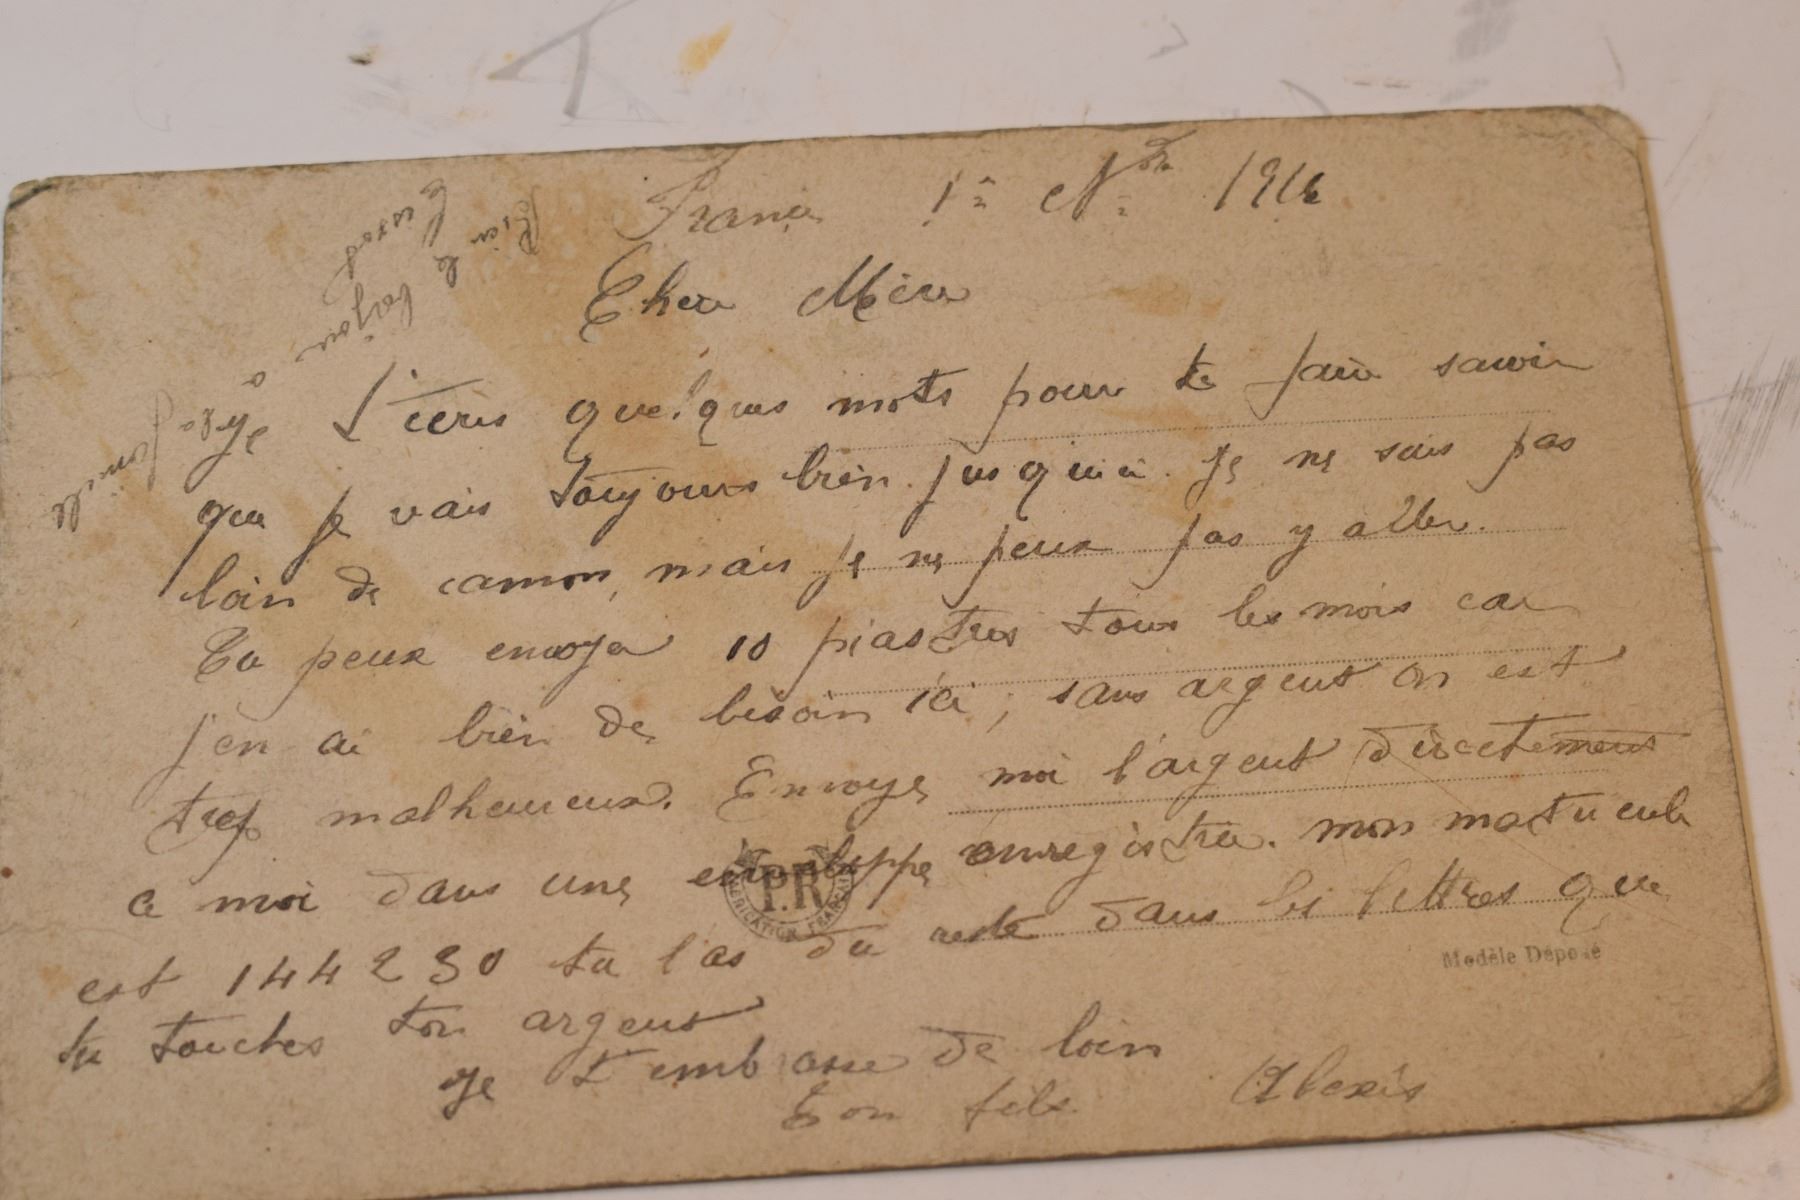 France 1er Nbre 1916
Chere Mère
J'écris quelques mots pour te faire savoir
que je vais toujours bien jusqu'ici. Je ne suis pas
loin de camon, mais je ne peux pas y aller.
Tu peux envoyer 10 piastres tous les mois car
j'en ai bien de besoin ici ; sans argent on est
trop malheureux. Envoye moi l'argent directement
a moi dans une enveloppe enregistrée. mon matricule
est 144230 tu l'as du reste dans les lettres que
tu touches ton argent
Je t'embrasse de loin
Ton fils Alexis
Bien le bonjour à
la famille
P.R
FABRICATION FRANÇAISE
Modèle Déposé